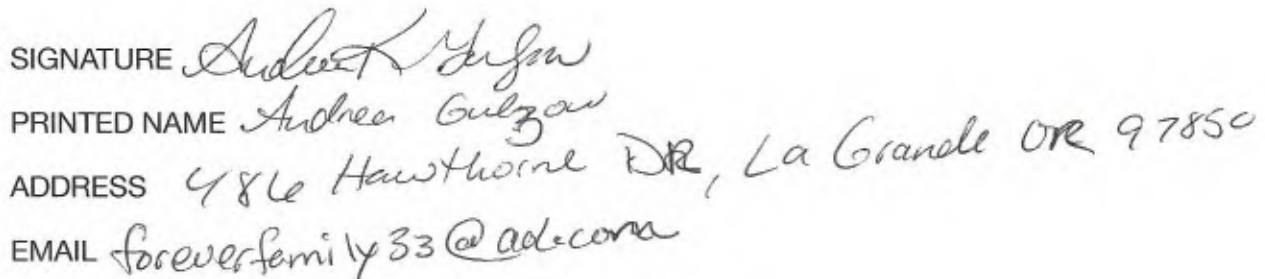 SIGNATURE Andrea K Gulzow
PRINTED NAME Andrea Gulzow
ADDRESS 486 Hawthorne DR, La Grande OR 97850
EMAIL foreverfamily33@aol.com